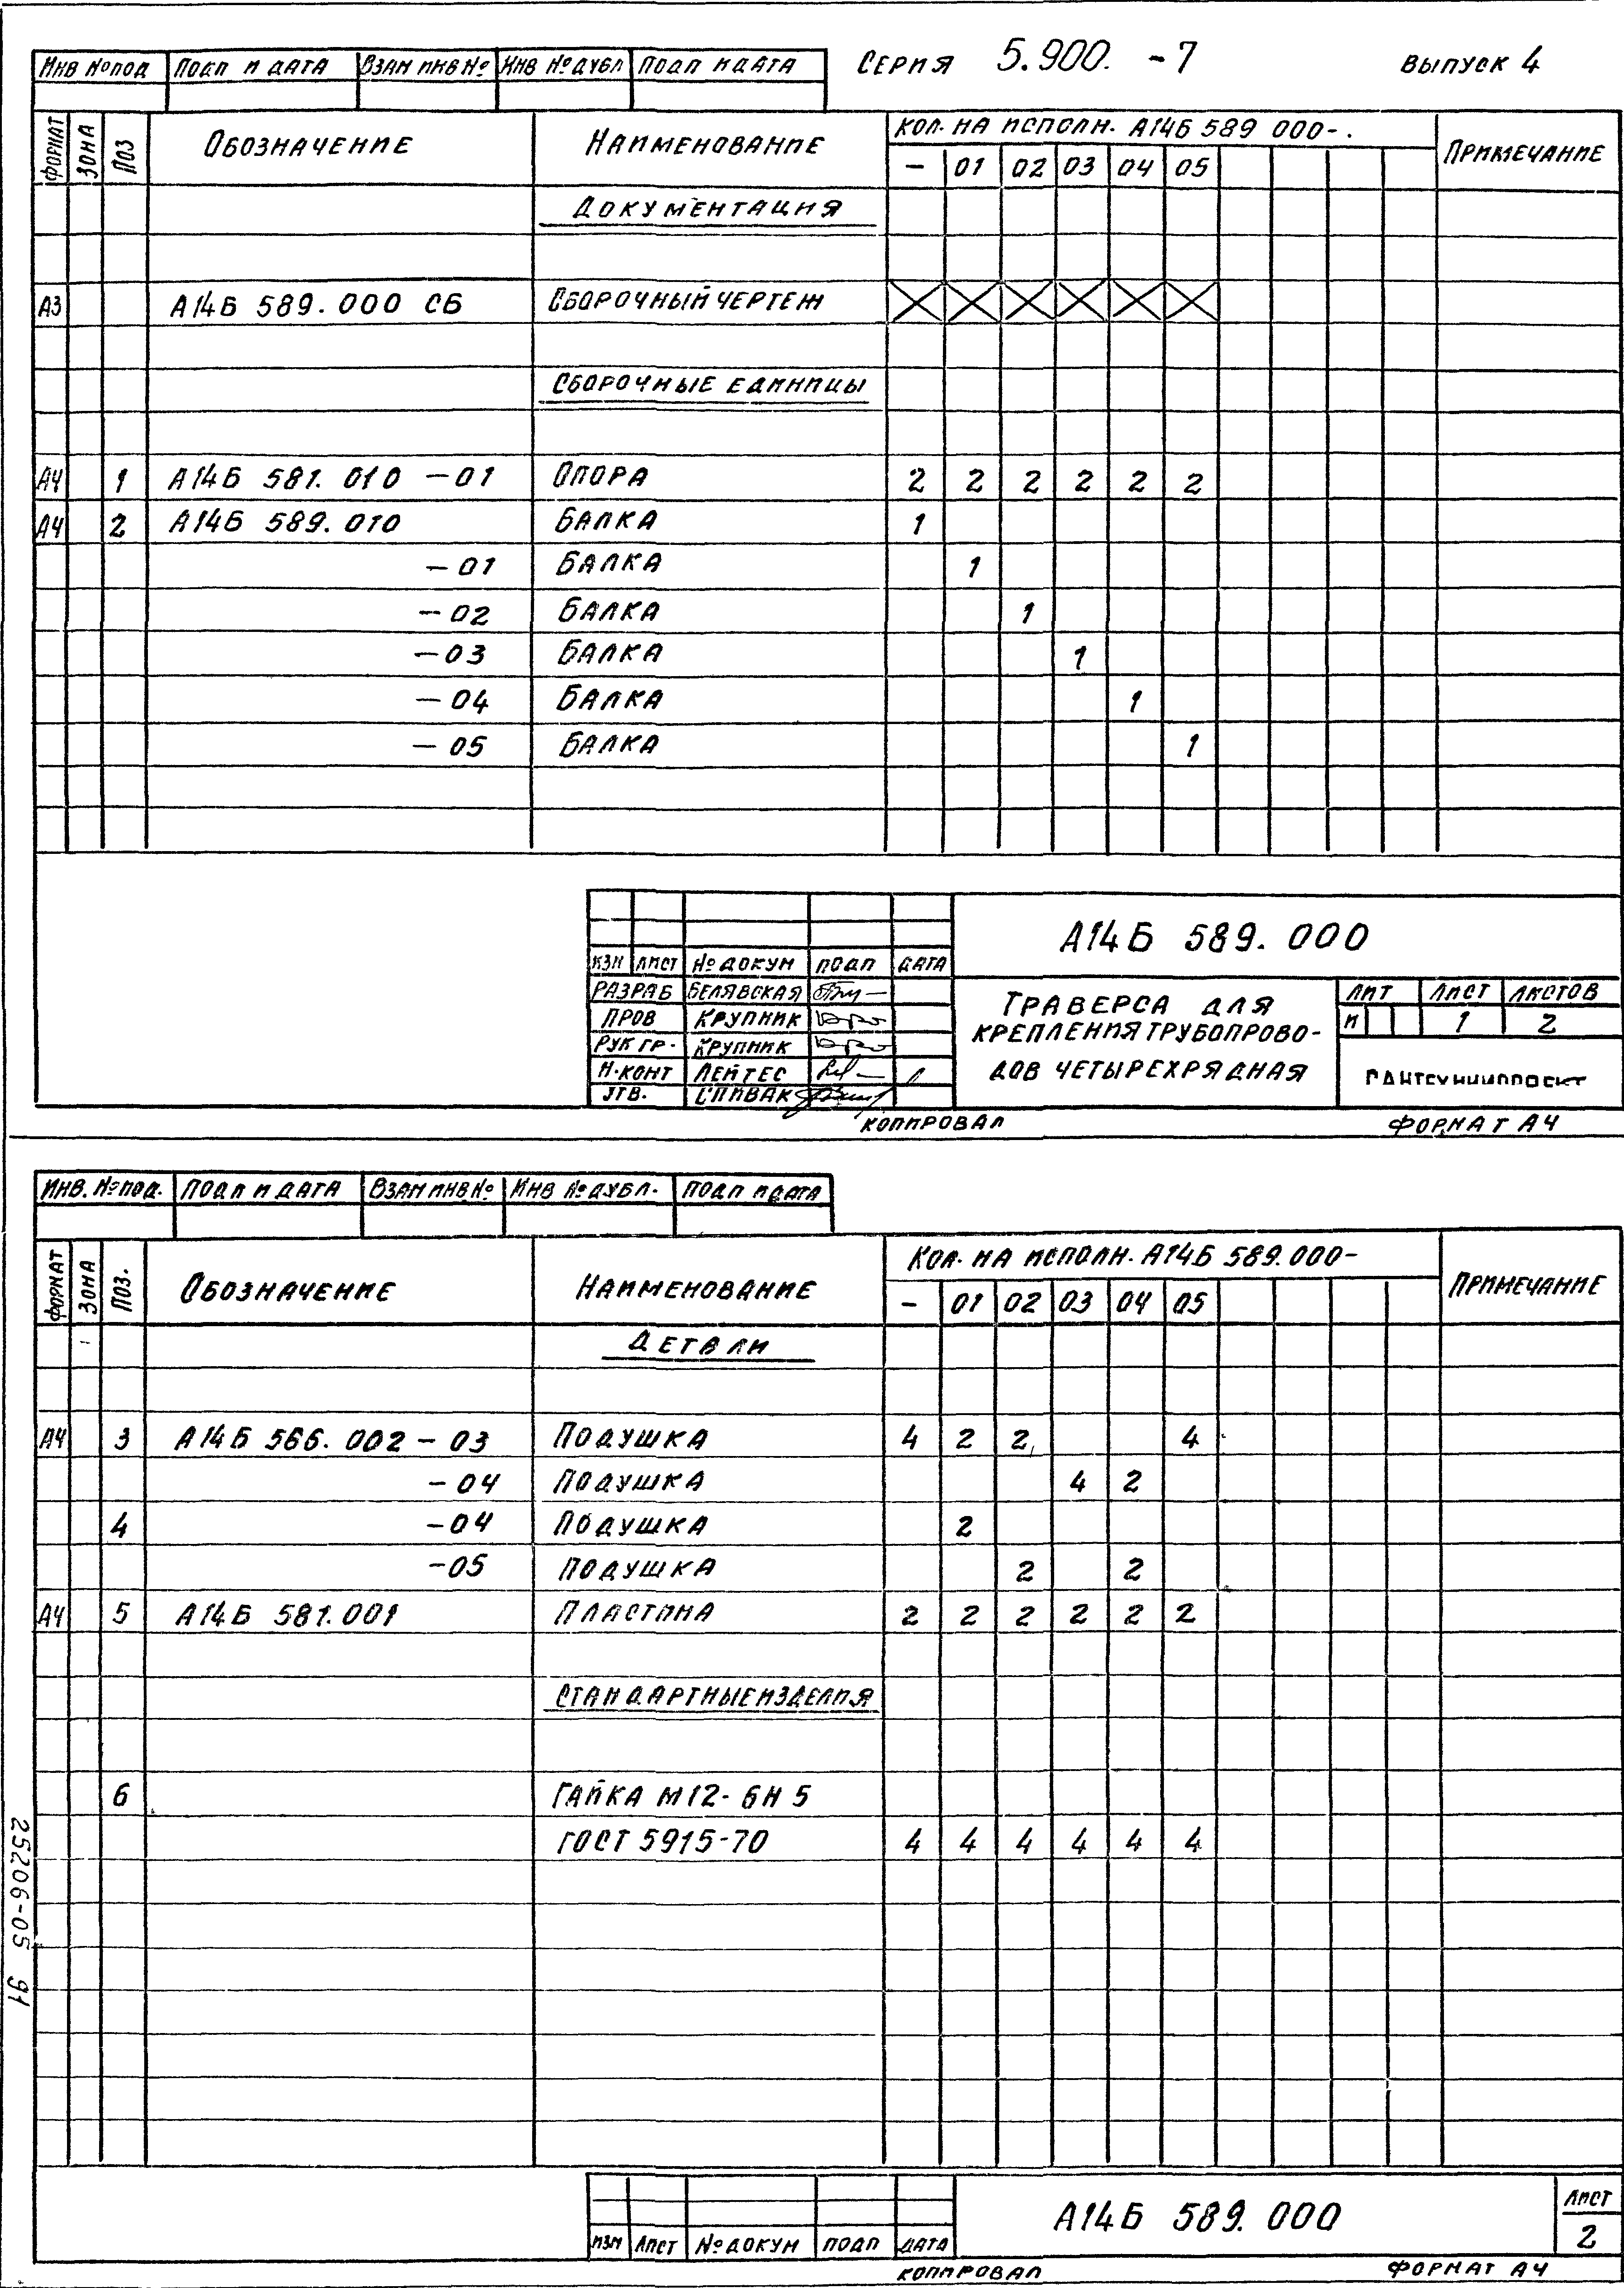 Серия 5.900. -7 Выпуск 4
Инв № под Подп и дата Взам инв № Инв № дубл Подп и дата
Формат Зона Поз Обозначение Наименование Кол. на исполн. А14Б 589 000-. Примечание
- 01 02 03 04 05
Документация
А3 А14Б 589.000 СБ Сборочный чертеж
Сборочные единицы
А4 1 А14Б 581.010 -01 Опора 2 2 2 2 2 2
А4 2 А14Б 589.010 Балка 1
-01 Балка 1
-02 Балка 1
-03 Балка 1
-04 Балка 1
-05 Балка 1
А14Б 589.000
Изм Лист № докум Подп Дата
Разраб Белявская
Пров Крупник
Рук гр. Крупник
Н.конт Лейтес
Утв. Спивак
Траверса для
крепления трубопрово-
дов четырехрядная
Лит Лист Листов
И 1 2
Сантехниипроект
Копировал Формат А4
Инв. № под. Подп и дата Взам инв № Инв № дубл. Подп и дата
Формат Зона Поз. Обозначение Наименование Кол. на исполн. А14Б 589.000- Примечание
- 01 02 03 04 05
Детали
А4 3 А14Б 566.002-03 Подушка 4 2 2 4
-04 Подушка 4 2
4 -04 Подушка 2
-05 Подушка 2 2
А4 5 А14Б 581.001 Пластина 2 2 2 2 2 2
Стандартные изделия
6 Гайка М12-6Н 5
ГОСТ 5915-70 4 4 4 4 4 4
25206-05 91
Изм Лист № докум Подп Дата
А14Б 589.000
Лист
2
Копировал Формат А4